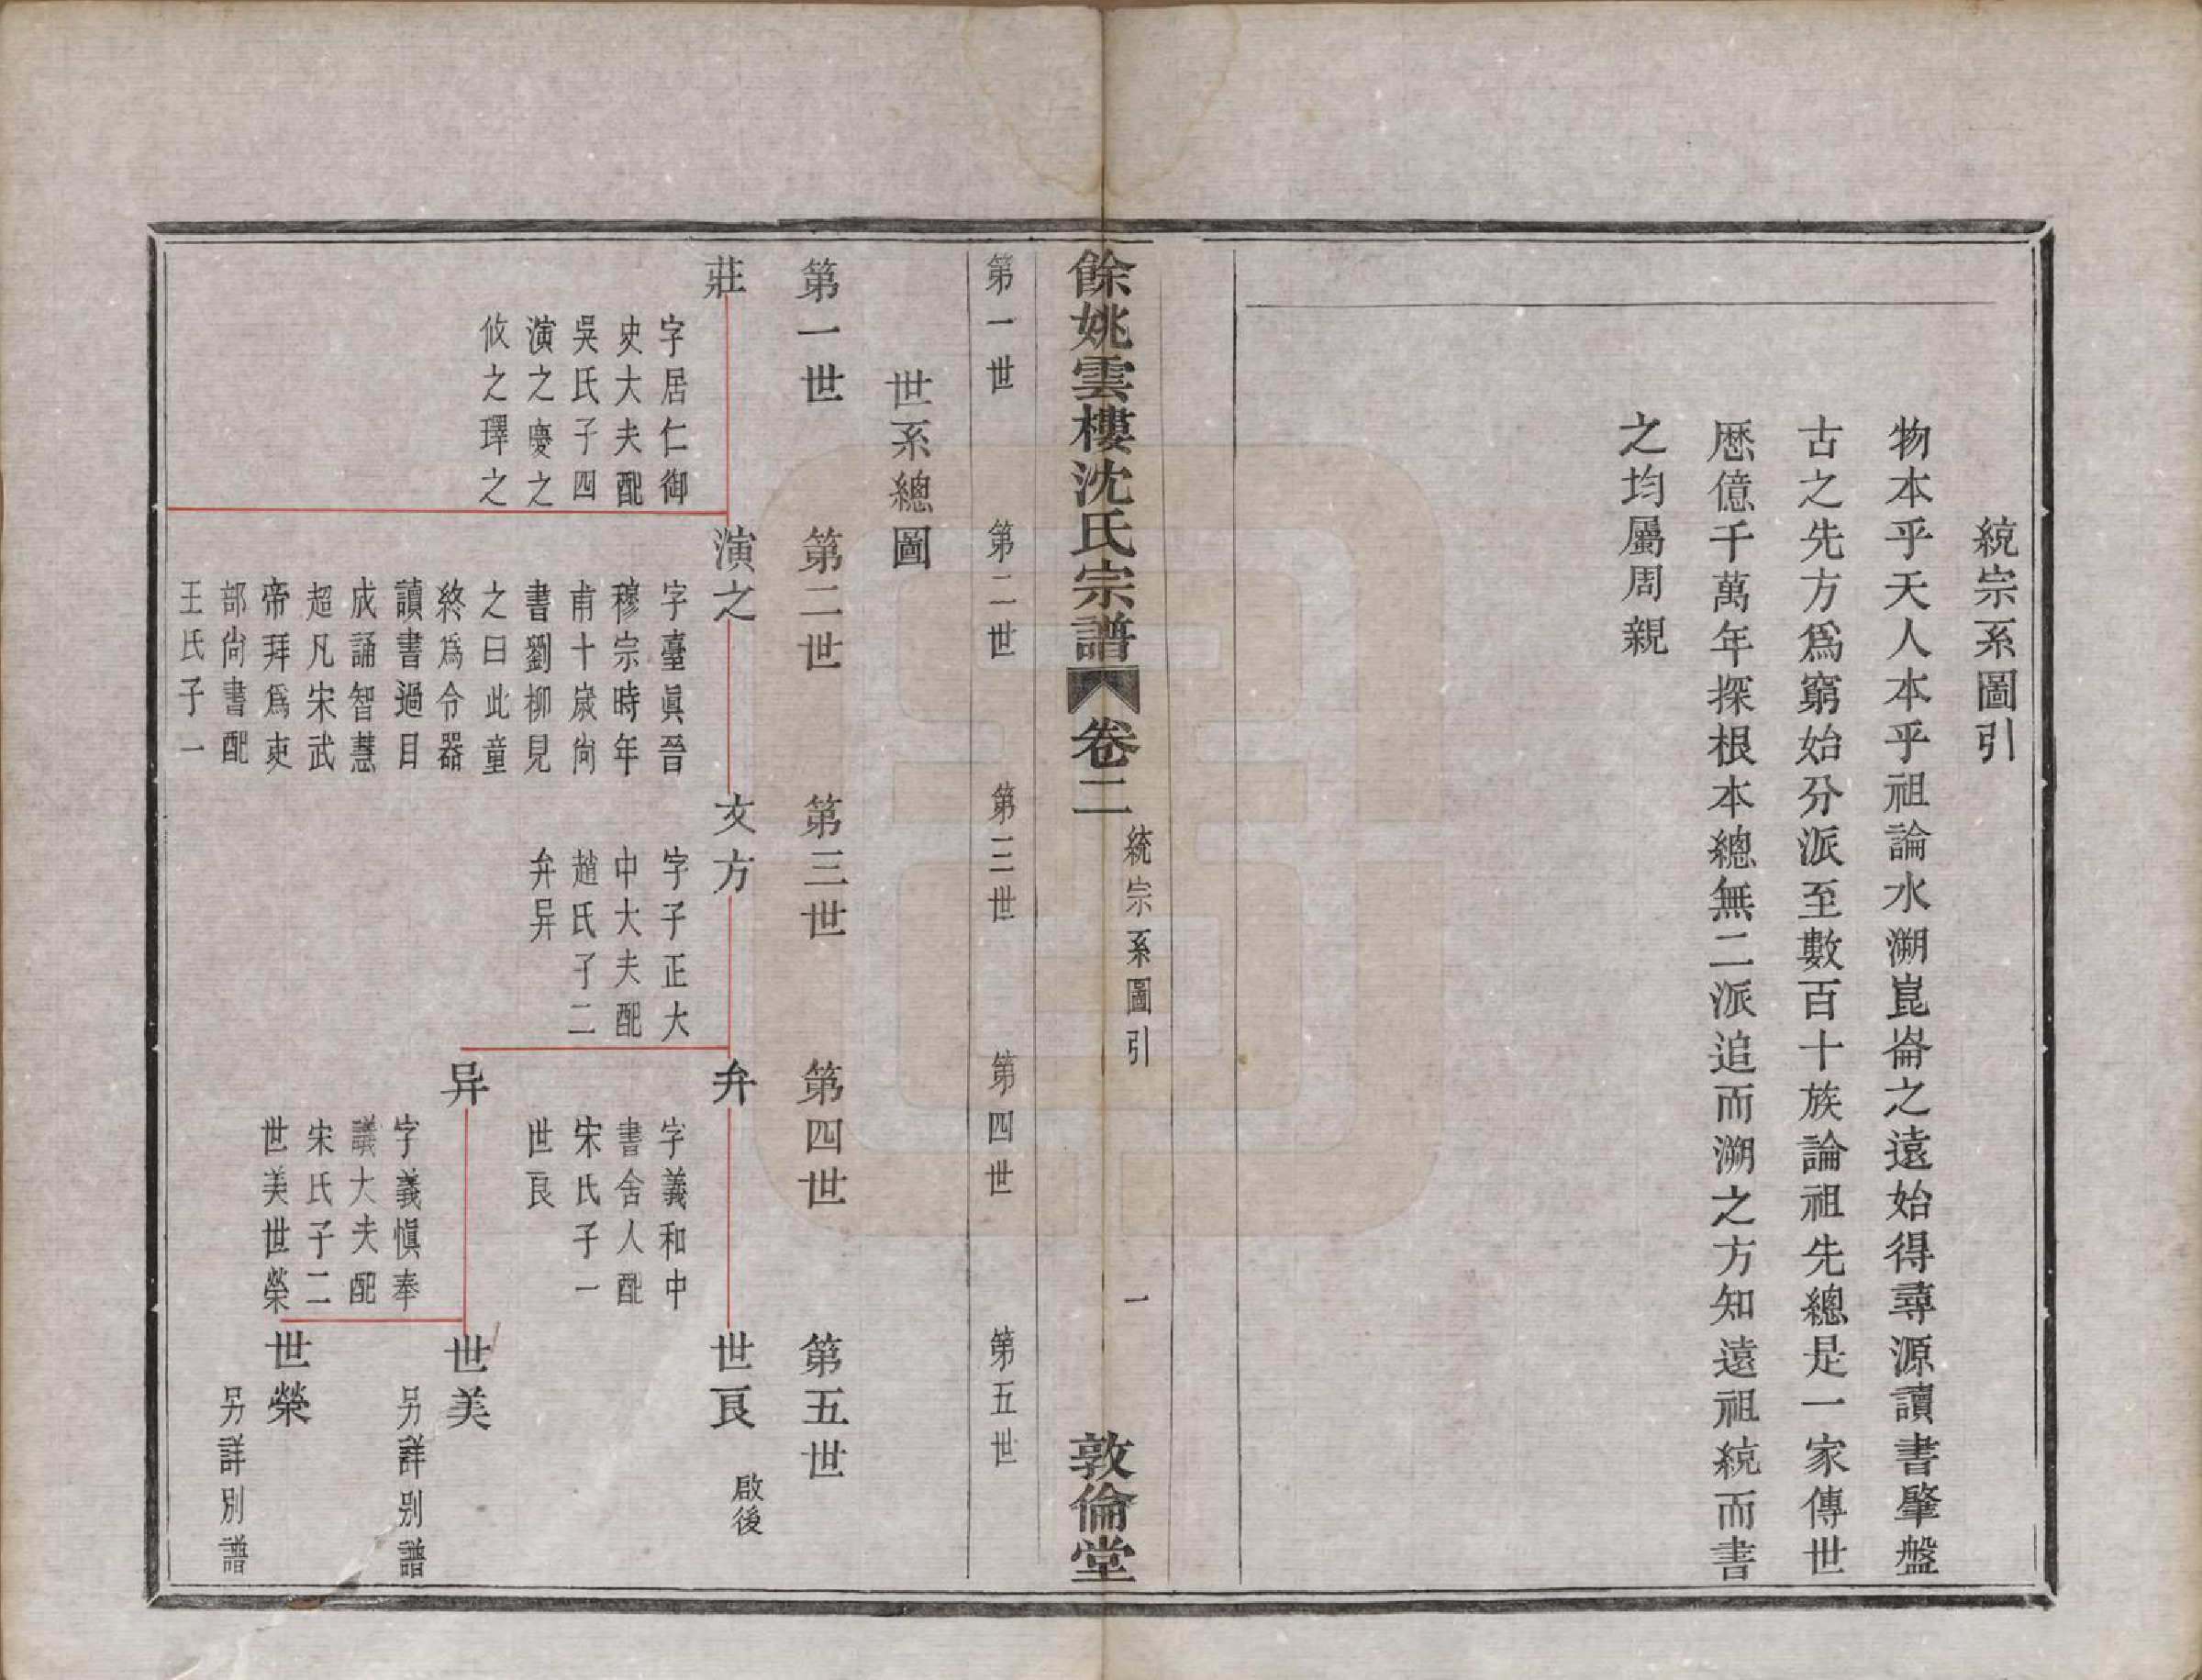 統宗系圖引
物本乎天人本乎祖論水溯崑崙之遠始得尋源讀書肇盤
古之先方爲窮始分派至數百十族論祖先總是一家傳世
歷億千萬年探根本總無二派追而溯之方知遠祖統而書
之均屬周親
餘姚雲樓沈氏宗譜 卷二 統宗系圖引 一 敦倫堂
第一世 第二世 第三世 第四世 第五世
世系總圖
第一世 第二世 第三世 第四世 第五世
莊
字居仁御
史大夫配
吳氏子四
演之慶之
攸之璍之
演之
字臺眞晉
穆宗時年
甫十歲尙
書劉柳見
之曰此童
終爲令器
讀書過目
成誦智慧
超凡宋武
帝拜爲吏
部尙書配
王氏子一
文方
字子正大
中大夫配
趙氏子二
弁异
弁
字義和中
書舍人配
宋氏子一
世良
世良 啟後
异
字義愼奉
議大夫配
宋氏子二
世美世榮
世美
另詳别譜
世榮
另詳別譜